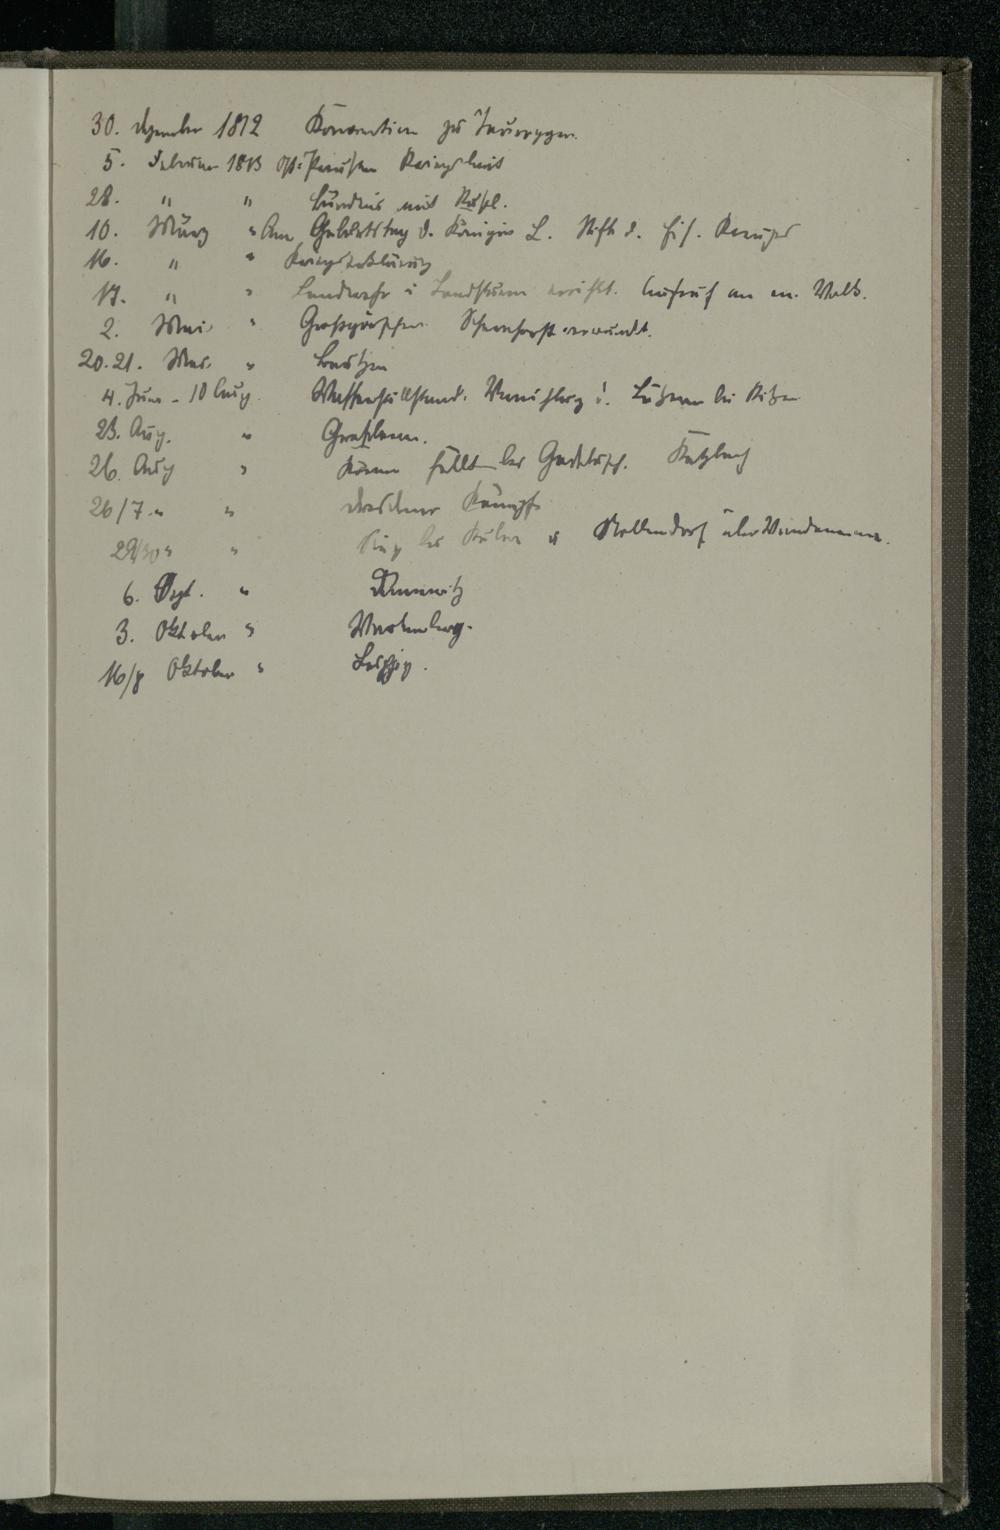 30. Dezember 1812 Konvention zu Tauroggen.
5. Februar 1813 Ost-Preußen Kriegsbereit
28. " " Bündnis mit Rußl.
10. März " Am Geburtstag d. Königin L. Stift d. Eis. Kreuzes
16. " " Kriegserklärung
17. " " Landwehr u Landsturm errichtet. Aufruf an m. Volk.
2. Mai " Großgörschen Scharnhorst verwundt.
20.21. Mai " Bautzen
4. Juni - 10 Aug. Waffenstillstand. Lützow bei Kitzen
23. Aug. " Großbeeren.
26. Aug " Körner fällt bei Gadebusch. Katzbach
26/7 " " Dresdener Kämpfe
29/30 " " Sieg bei Kulm u Nollendorf über Vandamme.
6. Sept. " Dennewitz
3. Oktober " Wartenburg.
16/8 Oktober " Leipzig.